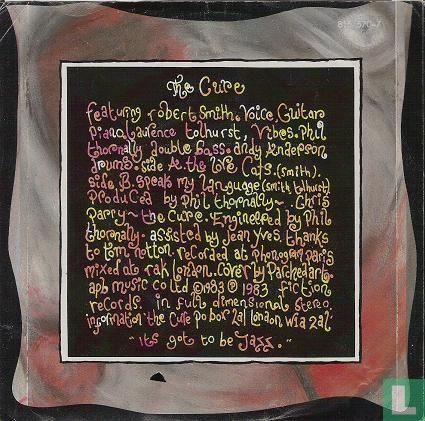 815 570-7
The Cure
featuring robert Smith. Voice, Guitar,
piano, Laurence tolhurst, Vibes. Phil
thornally double bass. andy Anderson
drums. side A. the love Cats. (smith).
side B. speak my language (smith tolhurst)
Produced by Phil thornally~ Chris
Parry~ the Cure. Engineered by Phil
thornally. assisted by Jean Yves. thanks
to tom notton recorded at Phonogram paris
mixed at rak london. cover by Parched art.
apb music co ltd ©1983 ℗ 1983 fiction
records. in full dimensional stereo.
information the Cure po box 2al london w1a 2al.
"its got to be jazz."
L